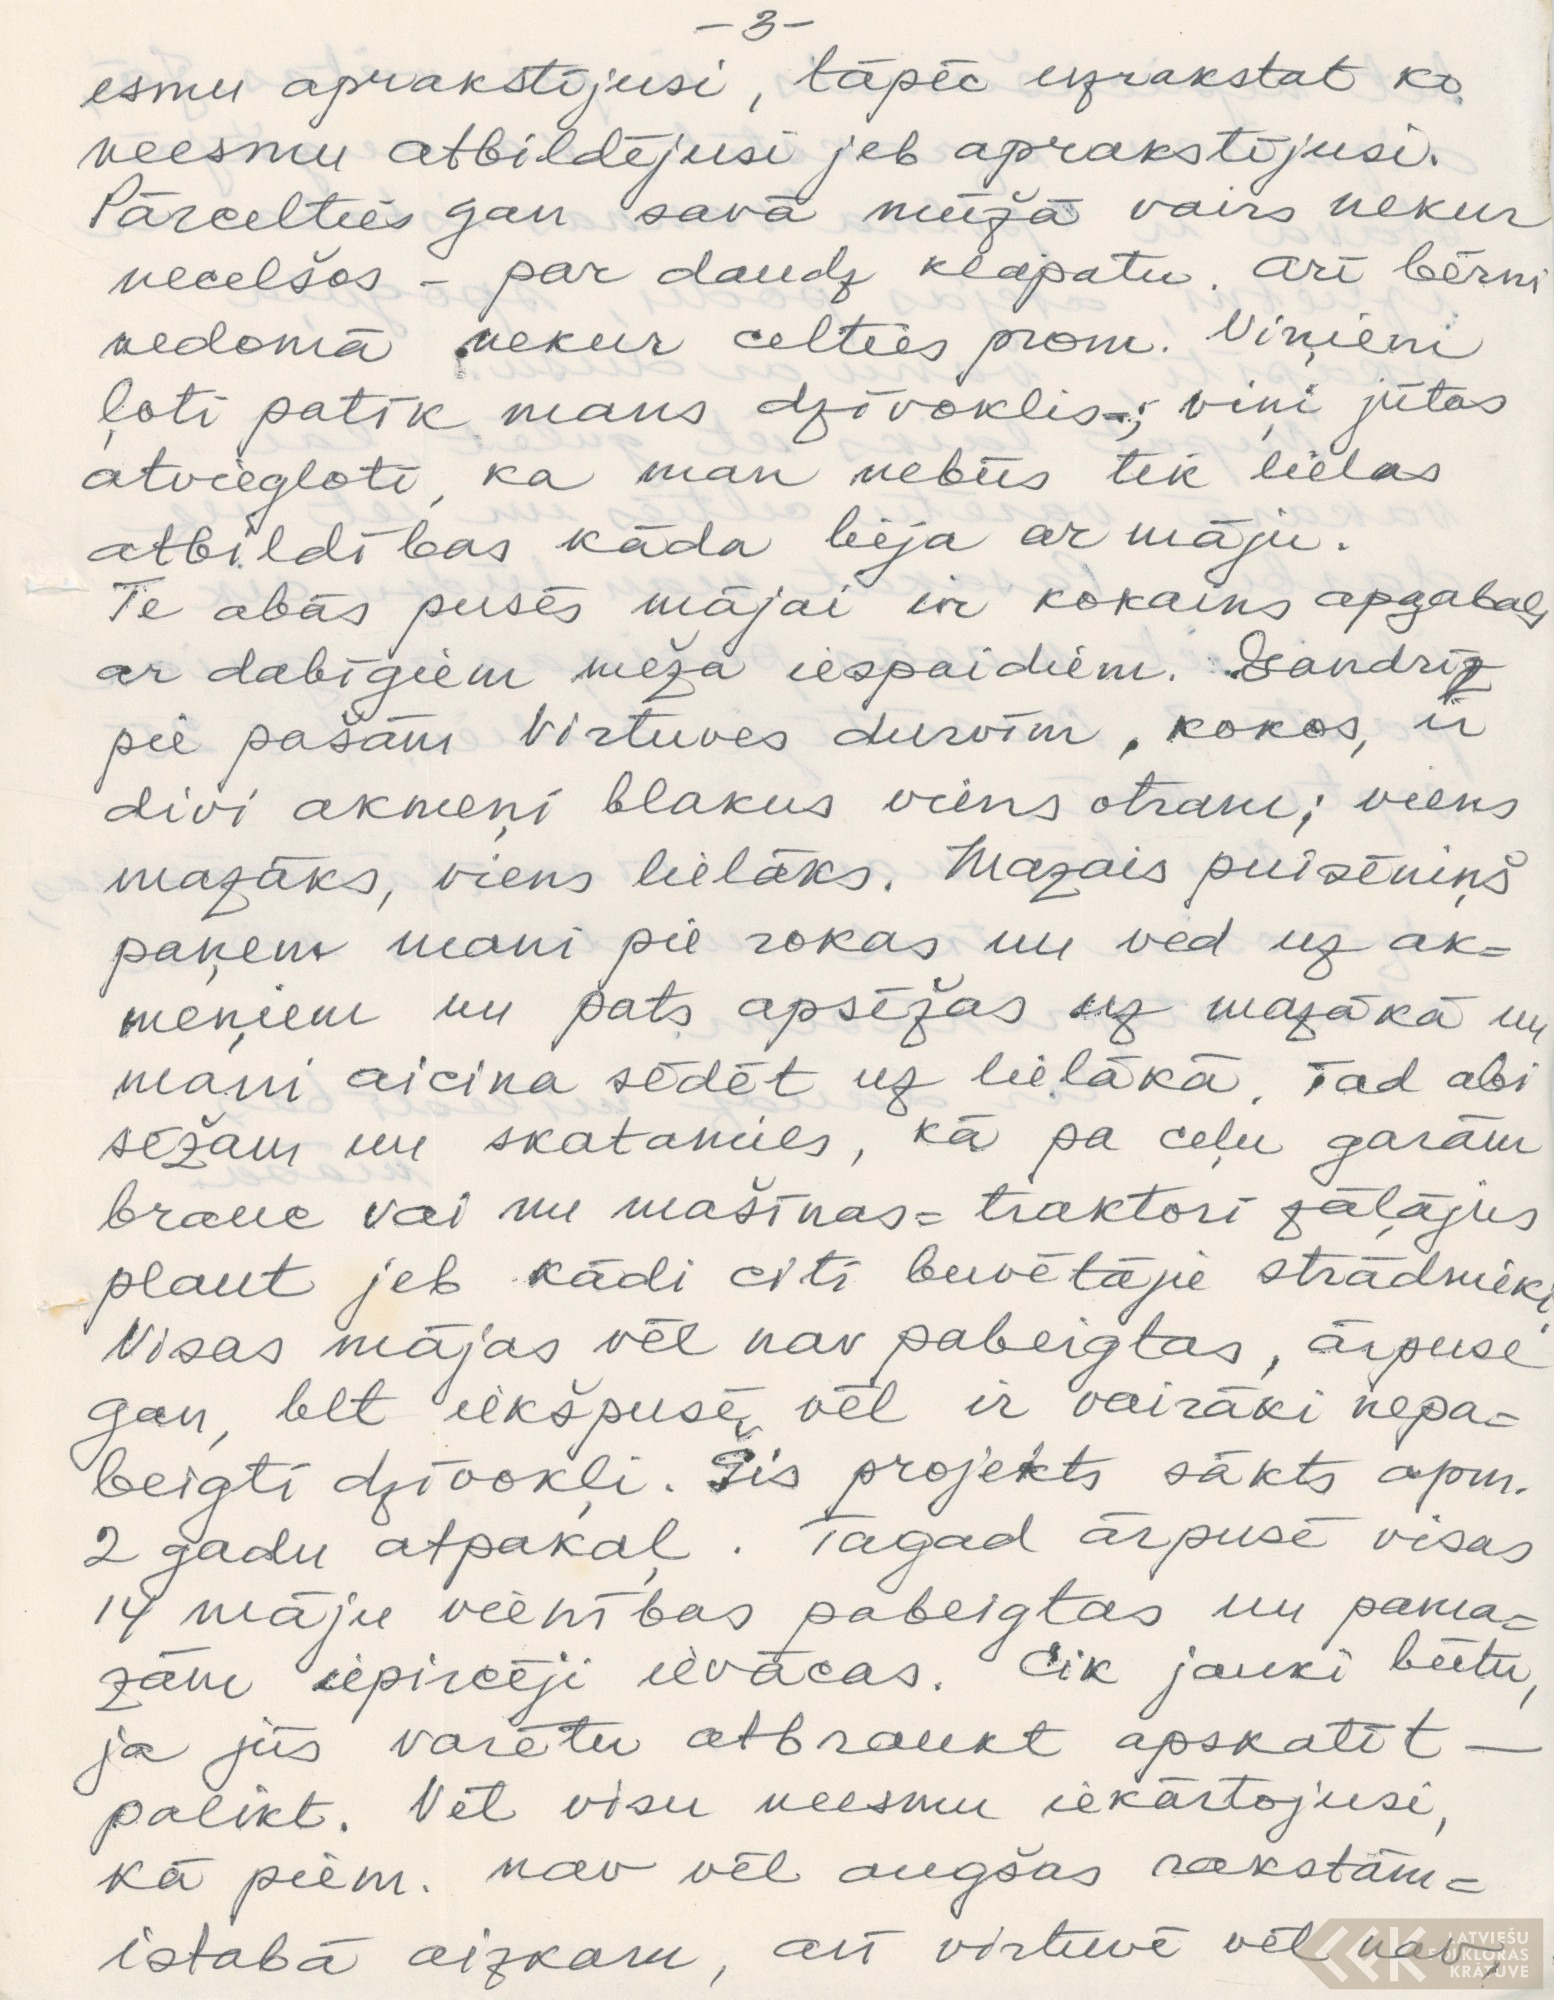 -3-
esmu aprakstījusi, tāpēc uzrakstat ko
neesmu atbildējusi jeb aprakstījusi.
Pārcelties gan savā mūžā vairs nekur
necelšos - par daudz klapatu. Arī bērni
nedomā nekur celties prom. Viņiem
ļoti patīk mans dzīvoklis; viņi jūtas
atviegloti, ka man nebūs tik lielas
atbildības kāda bija ar māju.
Te abās pusēs mājai ir kokains apgabals
ar dabīgiem meža iespaidiem.
pie pašām virtuves durvīm, kokos, ir
divi akmeņi blakus viens otram; viens
mazāks, viens lielāks. Mazais puisēniņš
paņem mani pie rokas un ved uz ak=
meņiem un pats apsēžas uz mazākā un
mani aicina sēdēt uz lielākā. Tad abi
sēžam un skatamies, kā pa ceļu garām
brauc vai nu mašīnas= traktori zālājus
plaut jeb kādi citi būvētāji strādnieki.
Visas mājas vēl nav pabeigtas, ārpusē
gan, bet iekšpusē vēl ir vairāki nepa=
beigti dzīvokļi. Šis projekts sākts apm.
2 gadu atpakaļ. Tagad ārpusē visas
14 māju vienības pabeigtas un pama=
zām iepircēji ievācas. Cik jauki būtu,
ja jūs varētu atbraukt apskatīt —
palikt. Vēl visu neesmu iekārtojusi,
kā piem. nav vēl augšas rakstām=
istabā aizkaru, arī virtuvē vēl nav,
LATVIEŠU
FOLKLORAS
KRĀTUVE